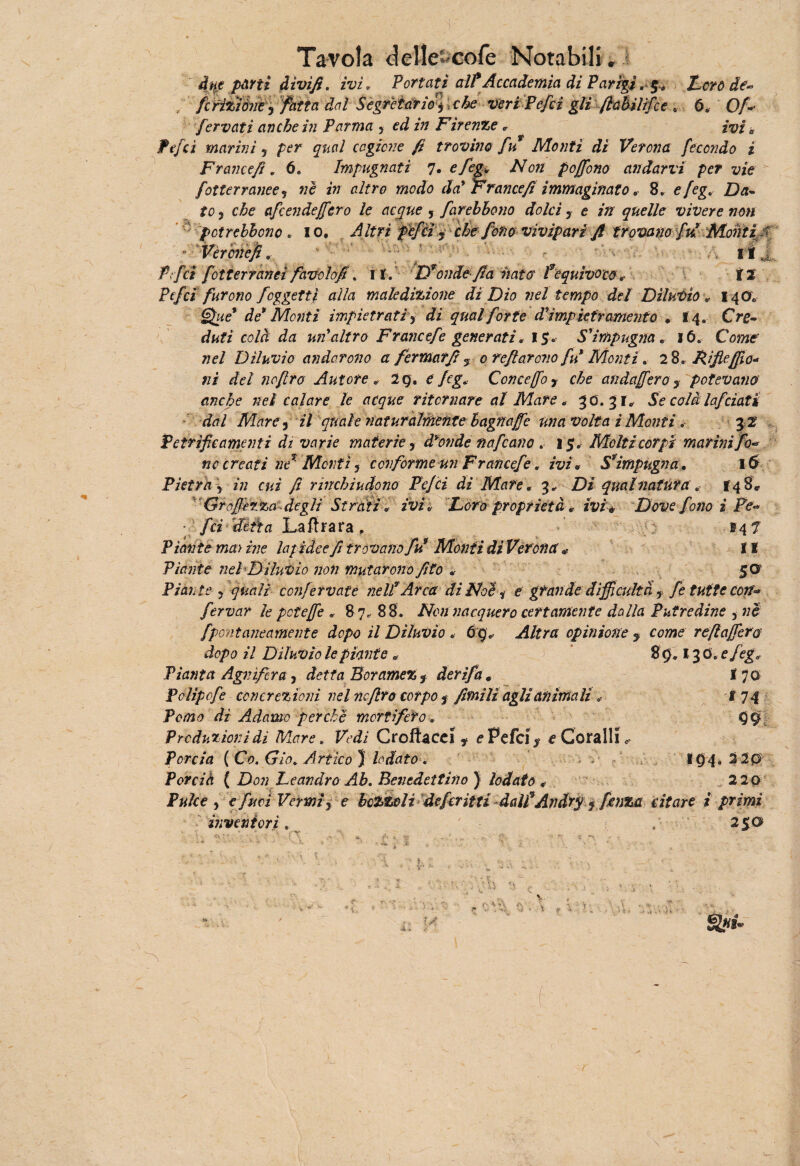 Tavola delle cose Notabili.
due parti divisi. ivi. Portati all'Accademia di Parigi. 5. Loro de-
scrizione, fatta dal Segretario, che veri Pesci gli stabilisce. 6. Os-
servati anche in Parma, ed in Firenze. ivi.
Pesci marini, per qual cagione si trovino su' Monti di Verona secondo i
Francesi. 6. Impugnati 7. e seg. Non possono andarvi per vie
sotterranee, nè in altro modo da' Francesi immaginato. 8. e seg. Da-
to, che ascendessero le acque, sarebbono dolci, e in quelle vivere non
potrebbono. 10. Altri pesci, che sono vivipari si trovano su' Monti
Veronesi. 11
Pesci sotterranei favolosi. 11. D'onde sia nato l'equivoco. 12
Pesci furono soggetti alla maledizione di Dio nel tempo del Diluvio. 140.
Que' de' Monti impietrati, di qual sorte d'impietramento. 14. Cre-
duti colà da un'altro Francese generati. 15. S'impugna. 16. Come
nel Diluvio andarono a fermarsi, o restarono su' Monti. 28. Riflessio-
ni del nostro Autore. 29. e seg. Concesso, che andassero, potevano
anche nel calare le acque ritornare al Mare. 30. 31. Se colà lasciati
dal Mare, il quale naturalmente bagnasse una volta i Monti. 32
Petrificamenti di varie materie, d'onde nascano. 15. Molti corpi marini so-
no creati ne' Monti, conforme un Francese. ivi. S'impugna. 16
Pietra, in cui si rinchiudono Pesci di Mare. 3. Di qual natura. 148.
Grossezza degli Strati. ivi. Loro proprietà. ivi. Dove sono i Pe-
sci detta Lastrara. 147
Piante marine lapidee si trovano su' Monti di Verona. 11
Piante nel Diluvio non mutarono sito. 50
Piante, quali conservate nell'Arca di Noè, e grande difficultà, se tutte con-
servar le potesse. 87. 88. Non nacquero certamente dalla Putredine, nè
spontaneamente dopo il Diluvio. 69. Altra opinione, come restassero
dopo il Diluvio le piante. 89. 130. e seg.
Pianta Agnifera, detta Boramez, derisa. 170
Polipose concrezioni nel nostro corpo, simili agli animali. 174
Pomo di Adamo perchè mortifero. 99
Produzioni di Mare. Vedi Crostacei, e Pesci, e Coralli.
Porcia (Co. Gio. Artico) lodato. 194. 220
Porcia (Don Leandro Ab. Benedettino) lodato. 220
Pulce, e suoi Vermi, e bozzoli descritti dall'Andry, senza citare i primi
inventori. 250
Qui-